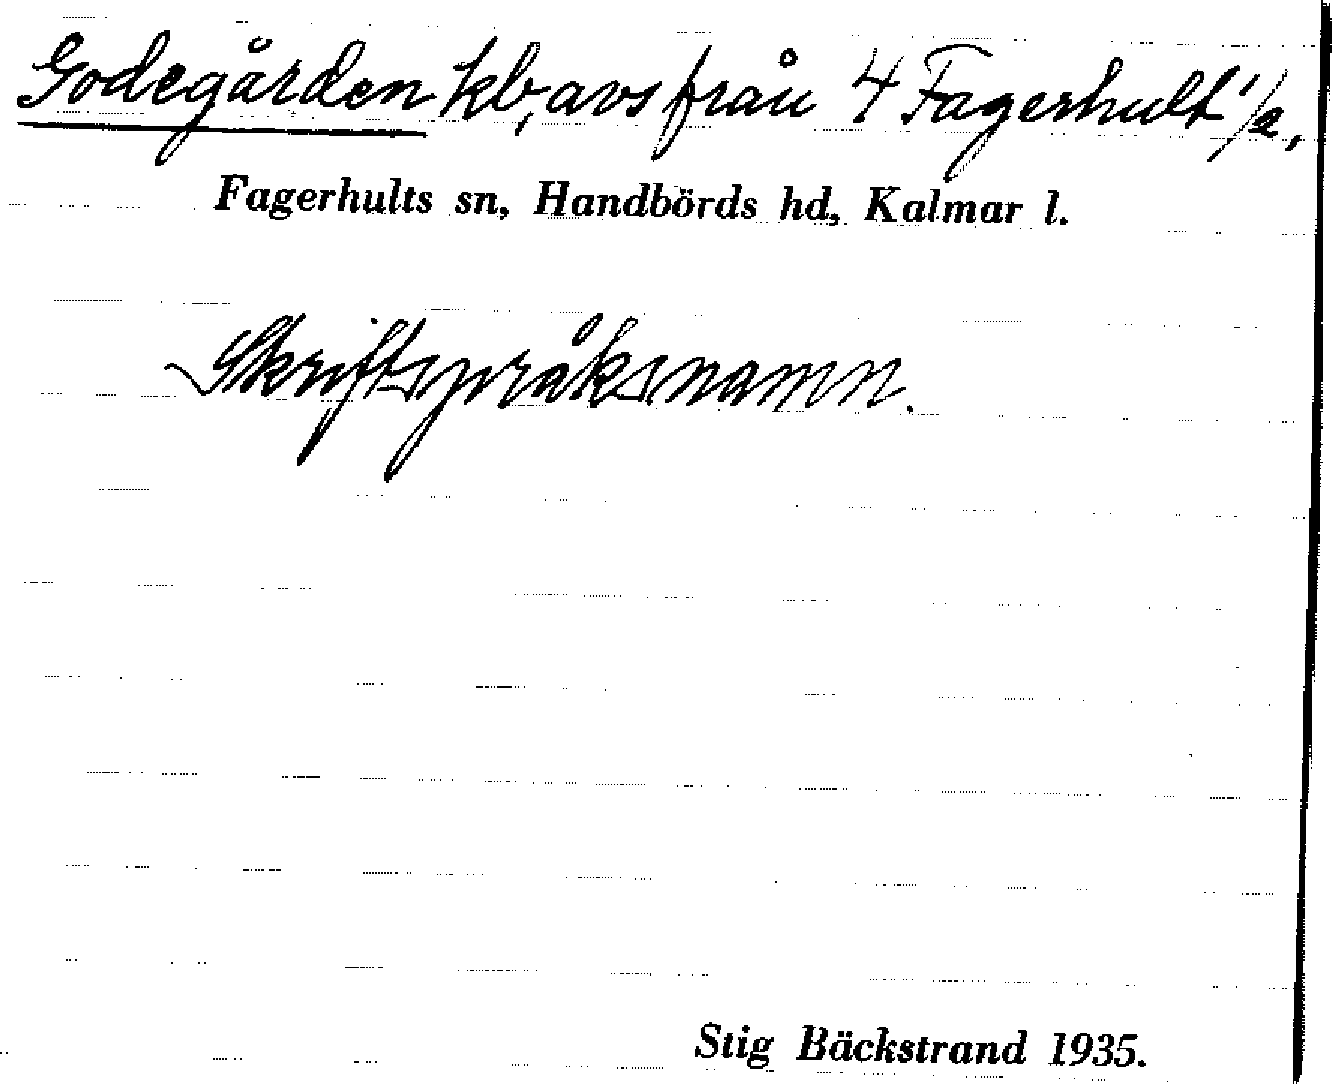 Godegården kb, avs från 4 Fagerhult 1/2,
Fagerhults sn, Handbörds hd, Kalmar l.
Skriftspråksnamn.
Stig Bäckstrand 1935.